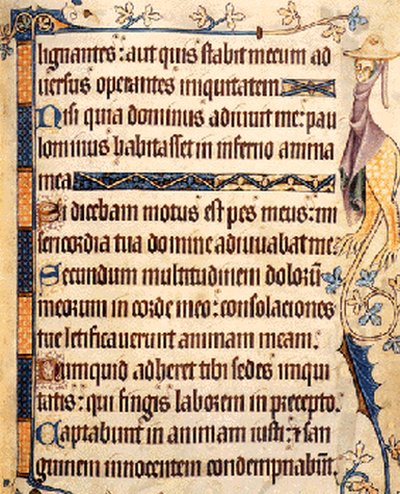 lignantes: aut quis stabit mecum ad
versus operantes iniquitatem
Nisi quia dominus adiuvit me: pau
lominus habitasset in inferno anima
mea
Si dicebam motus est pes meus: mi
sericordia tua domine adiuvabat me.
Secundum multitudinem dolorū
meorum in corde meo: consolaciones
tue letificaverunt animam meam.
Numquid adheret tibi sedes iniqui
tatis: qui fingis laborem in precepto.
Captabunt in animam iusti: ⁊ san
guinem innocentem condempnabūt.